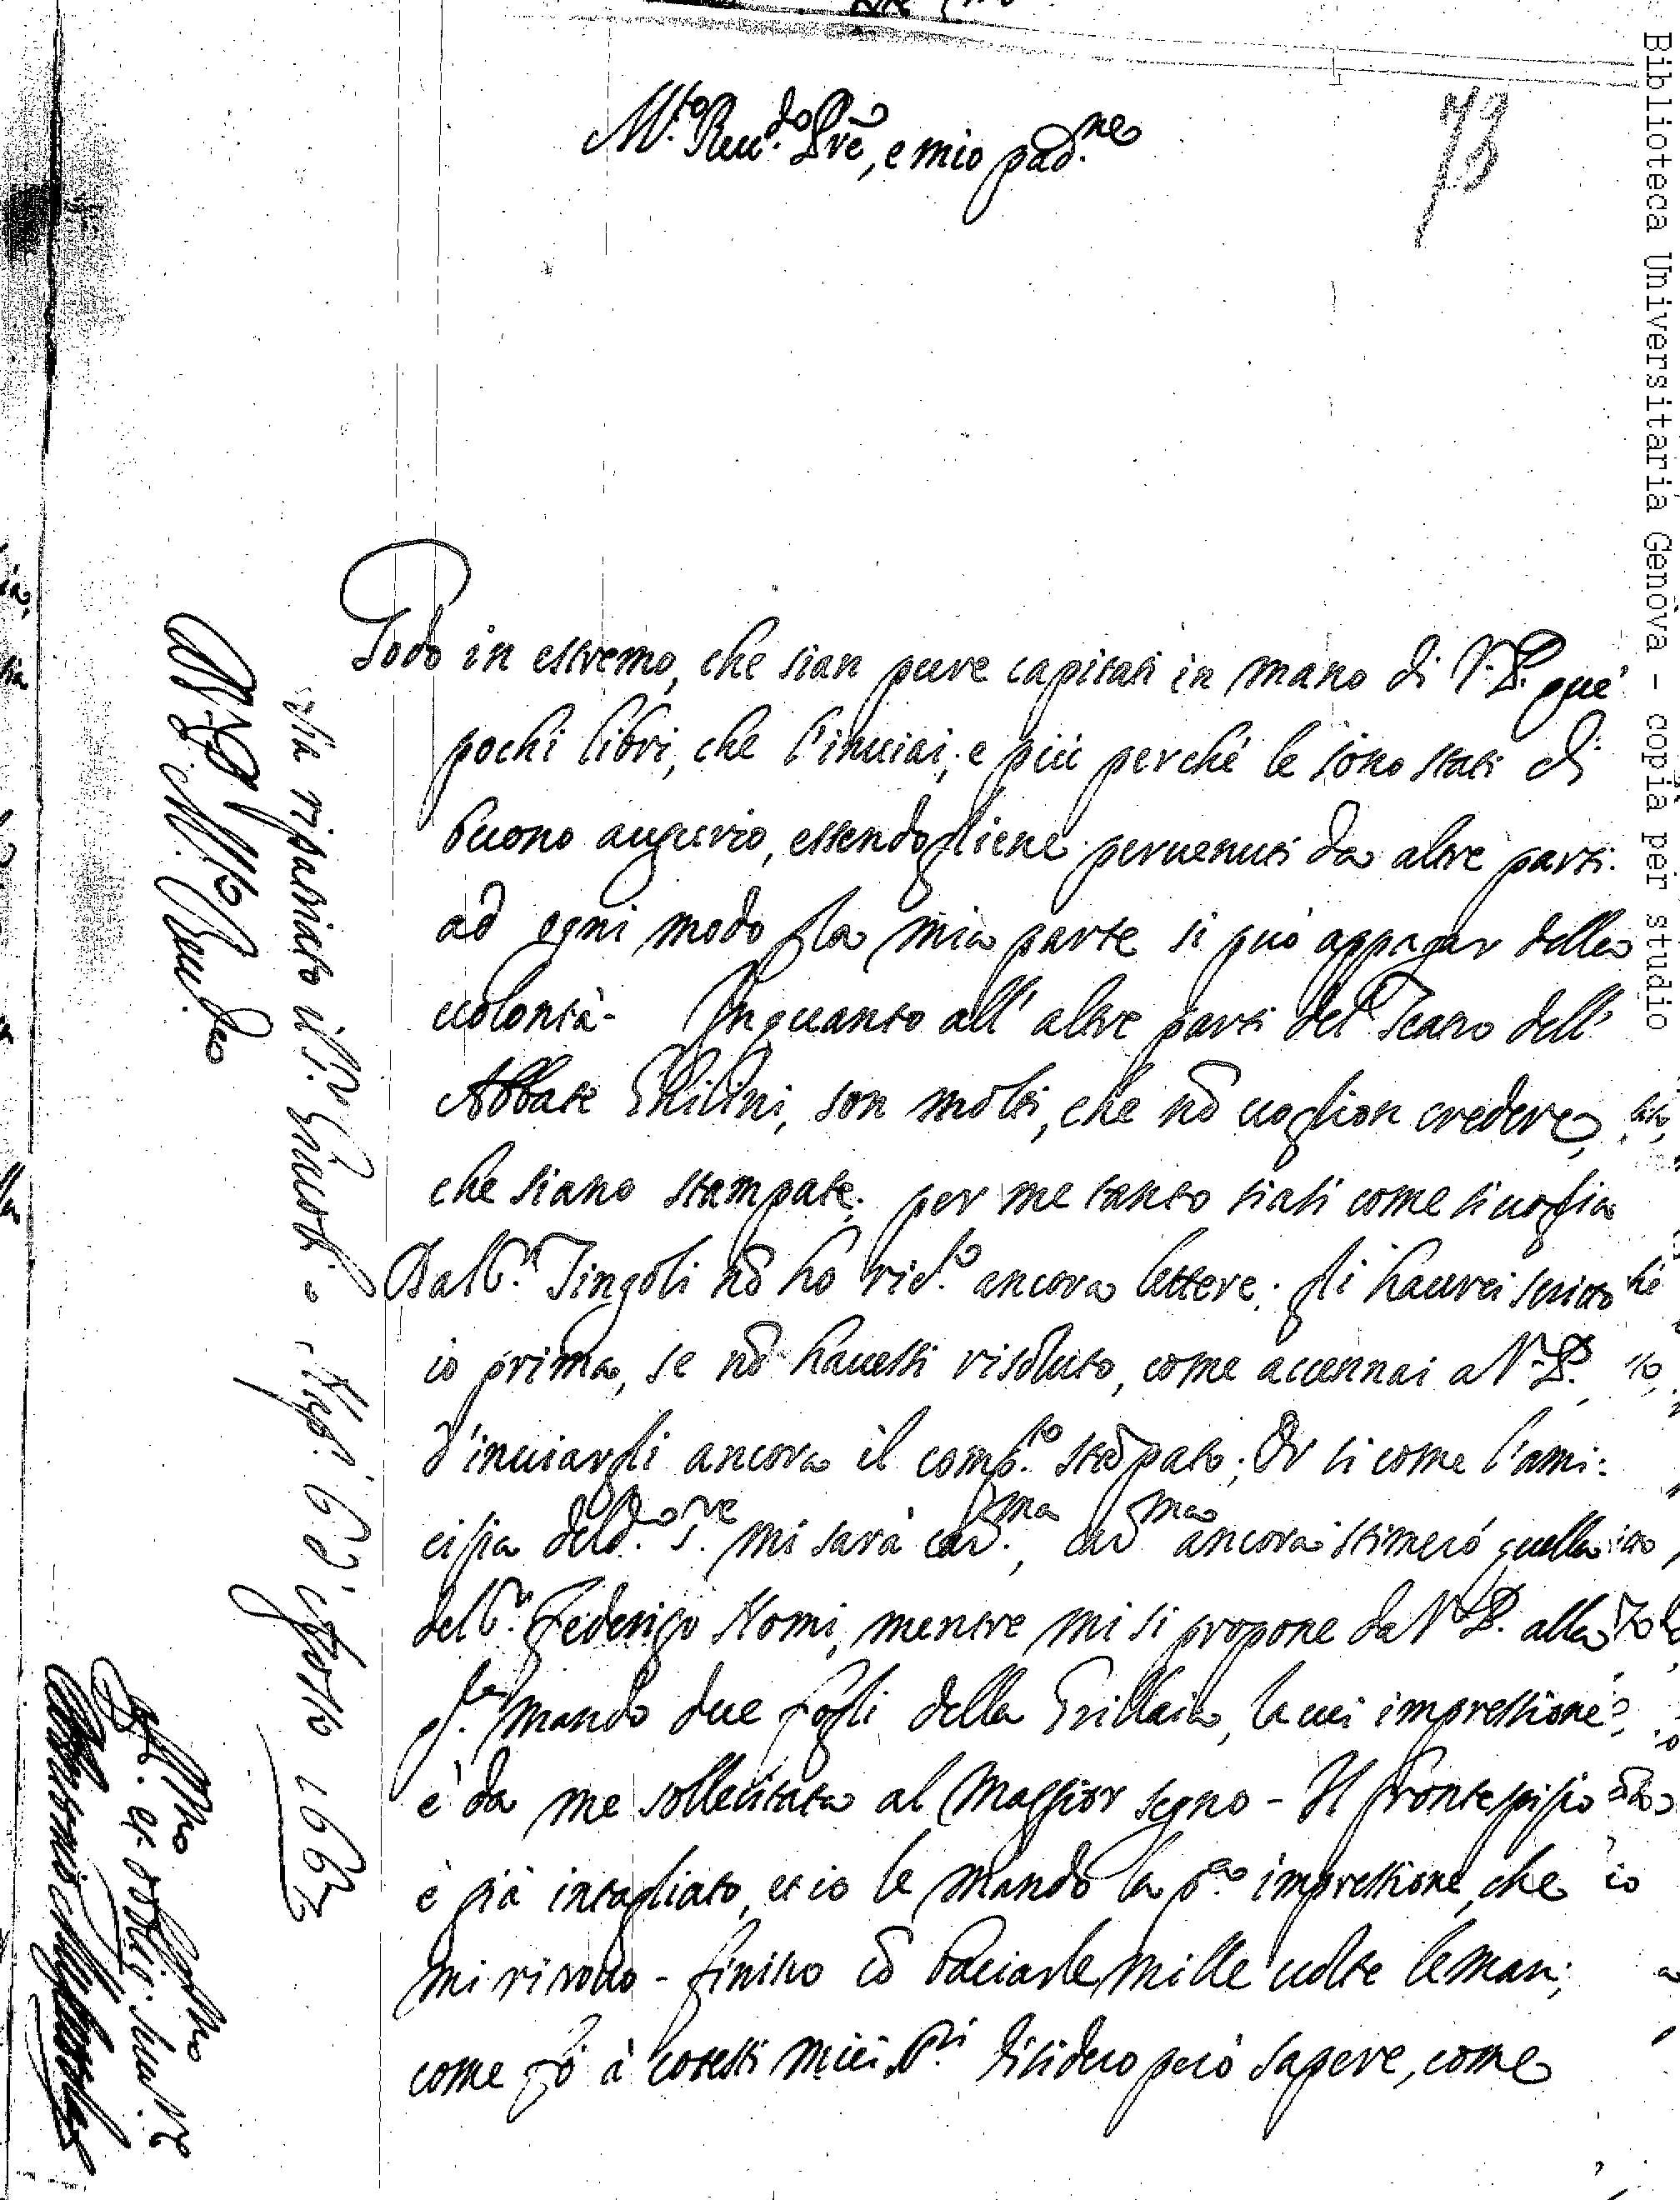 73
M.to Reu.do Pre, e mio pad.ne
Godo in estremo, che sian pure capitati in mano di V. P. que'
pochi libri, che l'inuiai; e più perché le sono stati di
buono augurio, essendogliene peruenuti da altre parti.
ad ogni modo la mia parte si può appagar della
uolontà. Inquanto all' altre parti del Teatro dell'
Abbate Ghilini, son molti, che nõ uoglion credere,
che siano stampate; per me tanto siasi come si uoglia
Dal S.r Zingoli nõ ho ric.to ancora lettere; gli haurei scritto
io prima, se nõ hauessi risoluto, come accennai a V. P.
d'inuiargli ancora il comp.to stãpato; Or si come l'ami-
cizia del d.o S.re mi sarà car.ma, car.ma ancora stimerò quella
del S.r Federigo Nomi, mentre mi si propone da V. P. alla
q.le mando due fogli della Grillaia, la cui impressione
è da me sollecitata al maggior segno - Il frontespizio
è già intagliato, et io le mando la p.a impressione, che
mi ritrouo - finisco cõ baciarle mille uolte le mani,
come fò à cotesti miei S.ri disidero però sapere, come
sia ripatriato il S.r Guasti. Nap. 6 d'Agosto 1667
D. V. P. M.to Reu.da
Aff.mo et obblig. seru.re
Antonio Magliabechi
Biblioteca Universitaria Genova - copia per studio